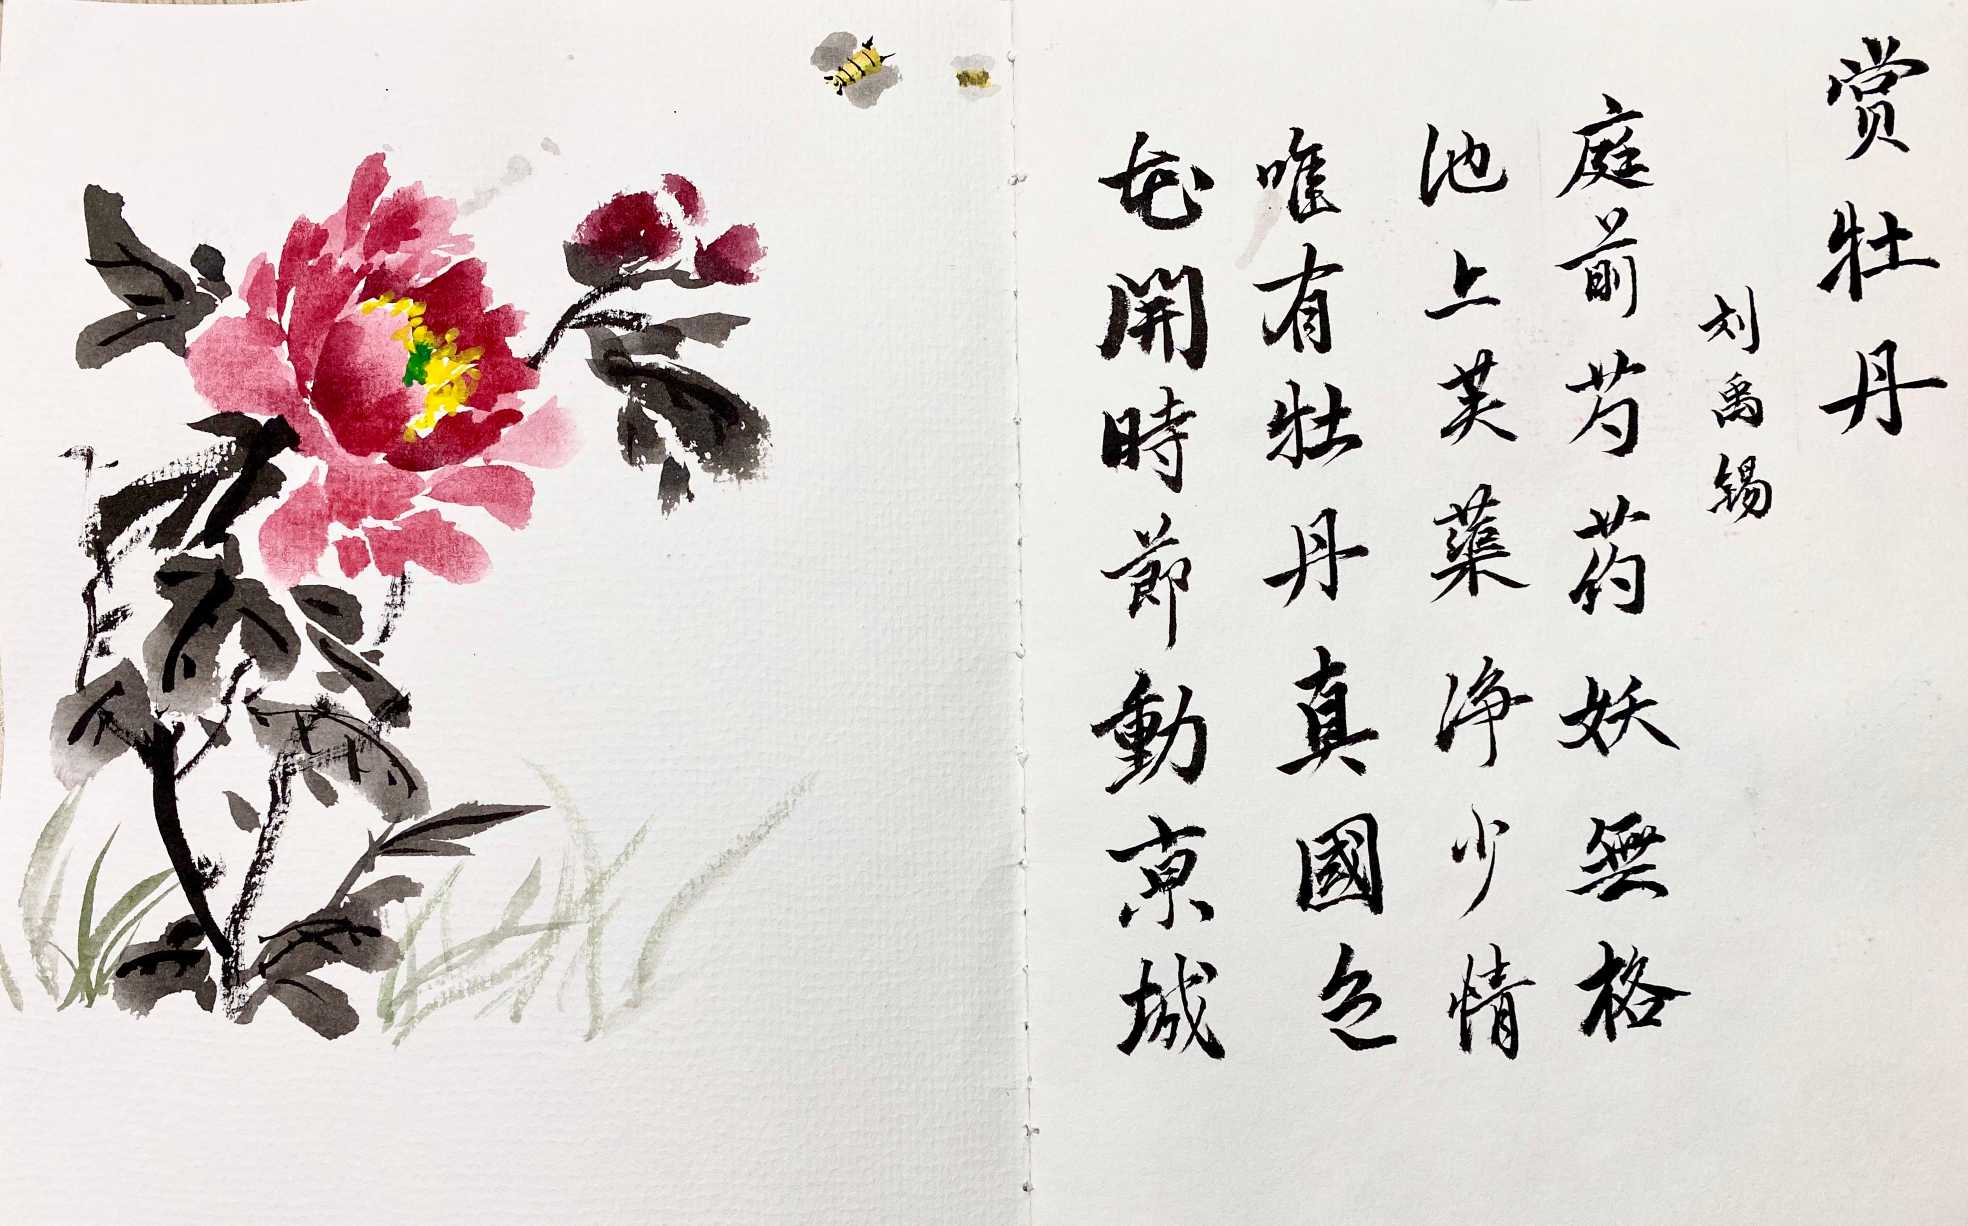 赏牡丹
刘禹锡
庭前芍药妖無格
池上芙蕖浄少情
唯有牡丹真國色
花開時節動京城